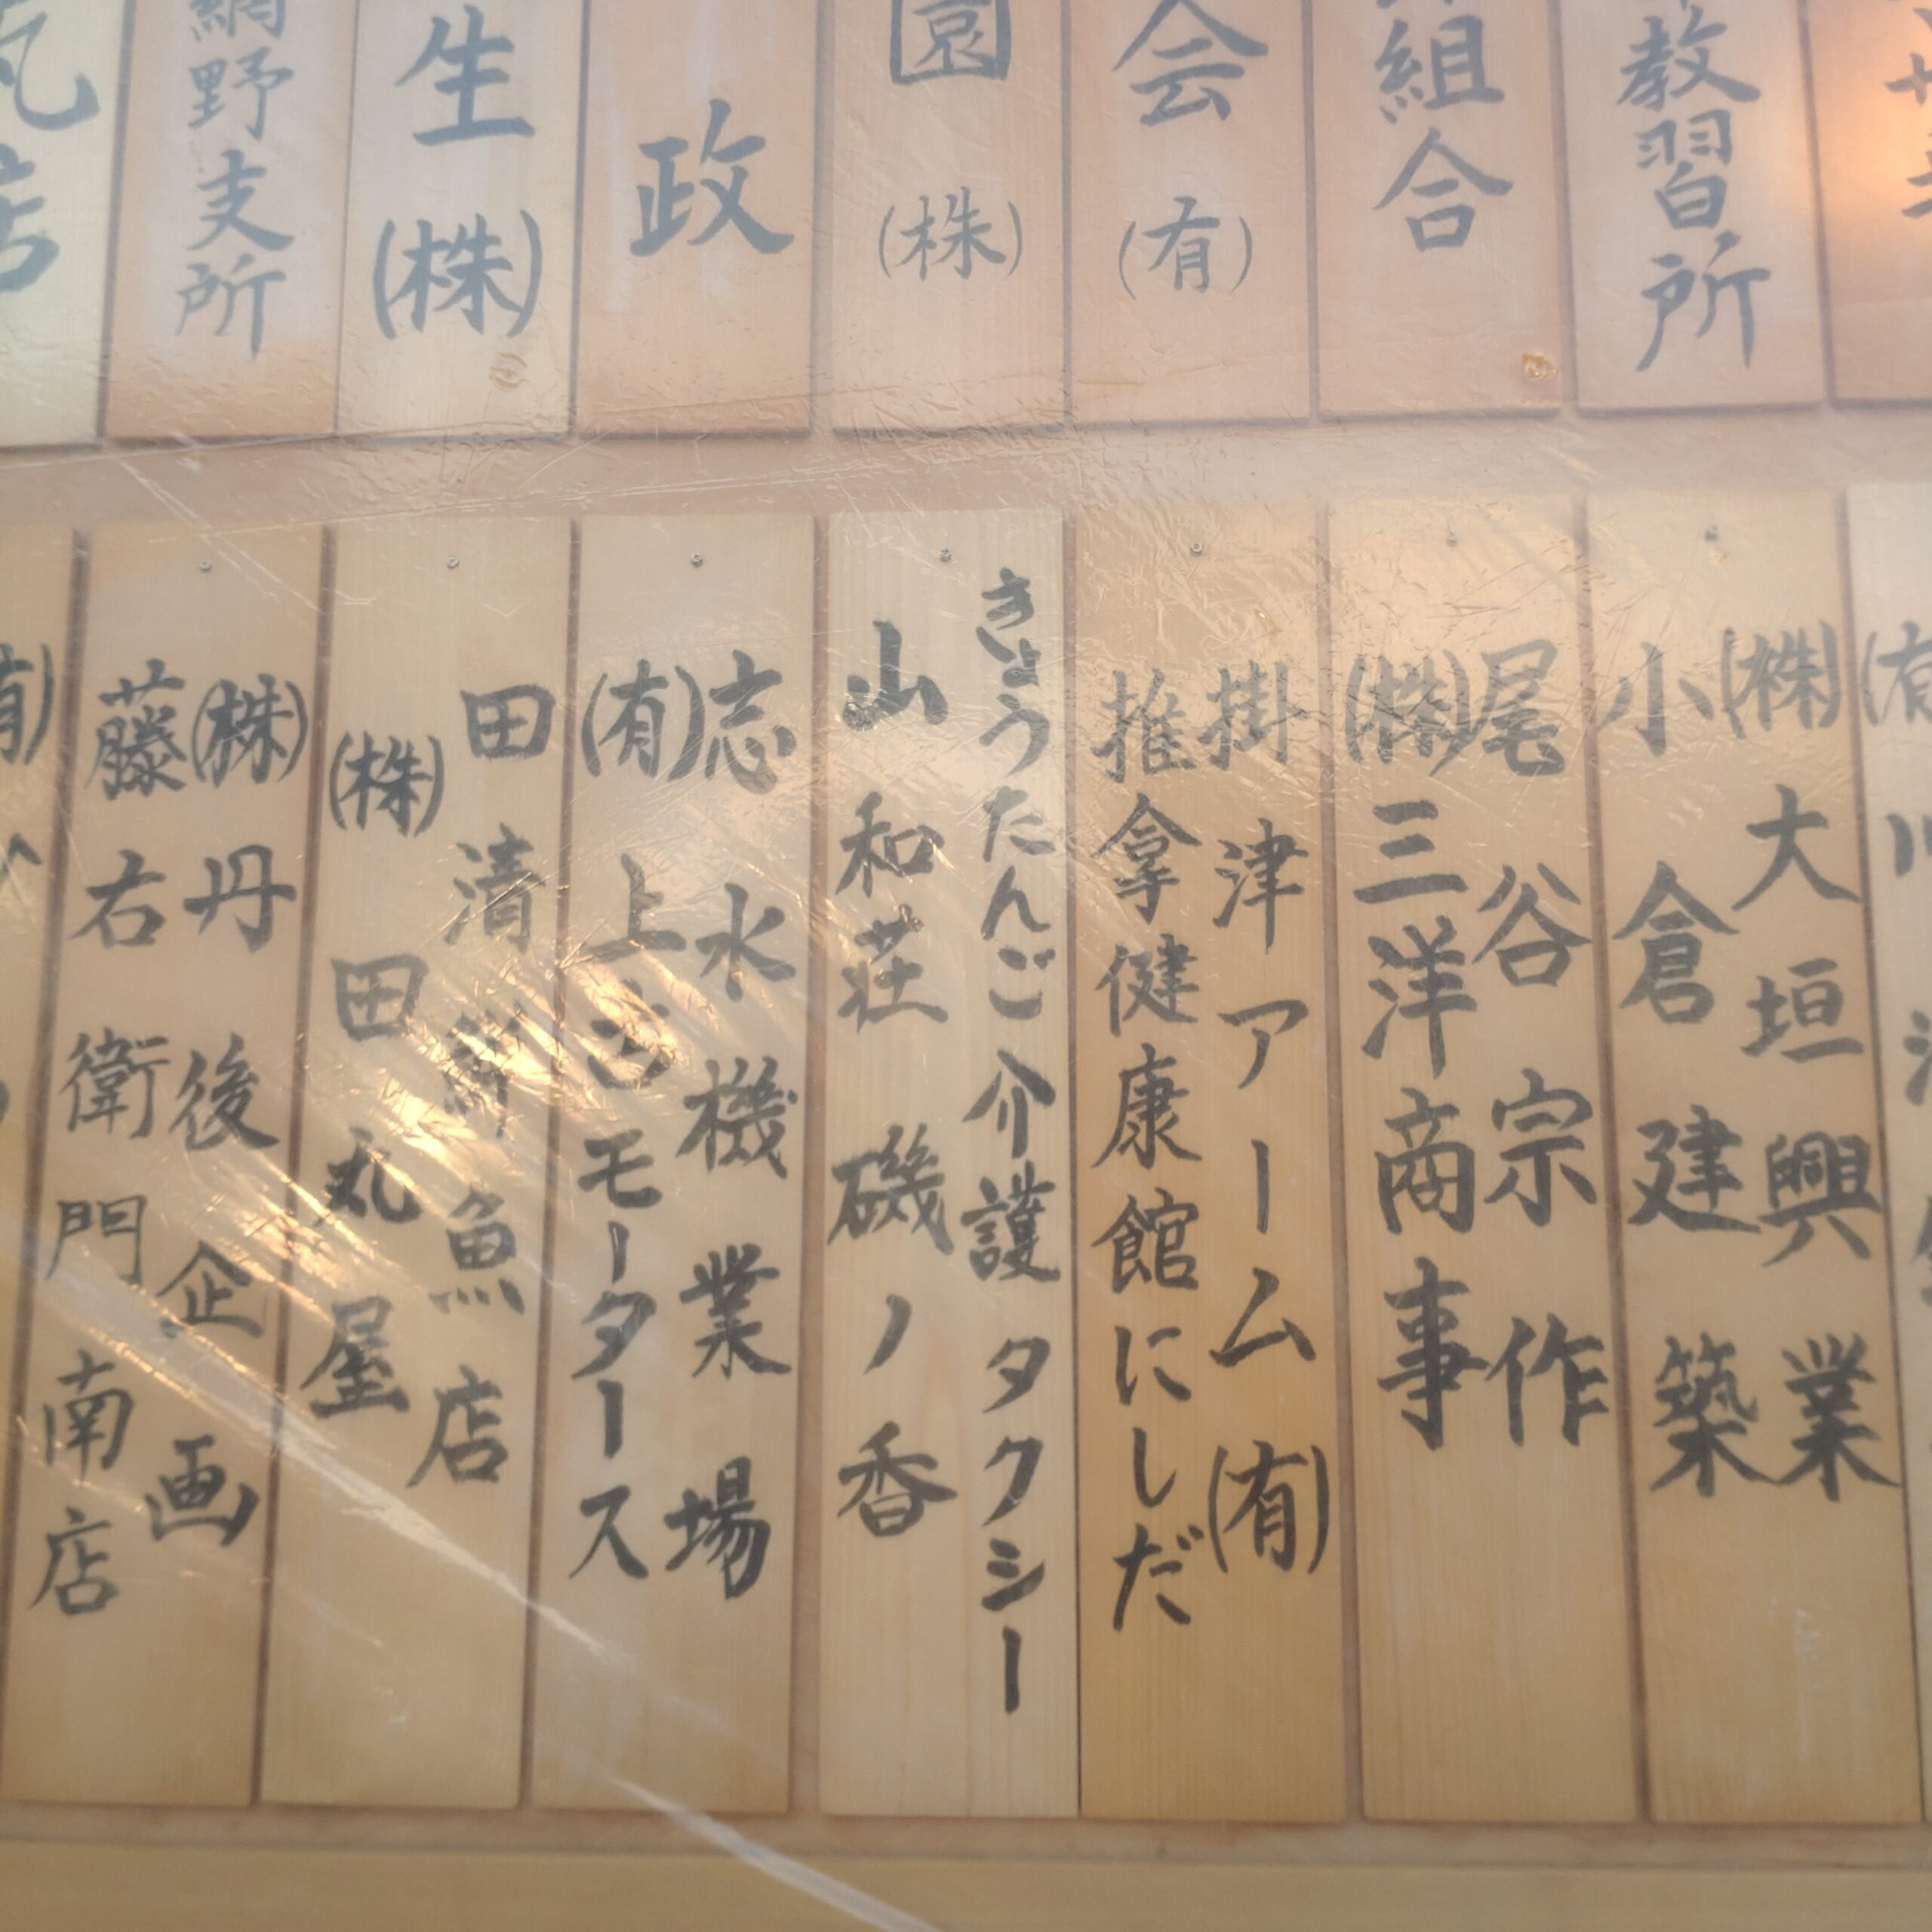 教習所
組合
会(有)
園(株)
政
生(株)
網野支所
店
(株)大垣興業
小倉建築
尾谷宗作
(株)三洋商事
掛津アーム(有)
推拿健康館にしだ
きょうたんご介護タクシー
山和荘 磯ノ香
志水機業場
(有)上 モータース
田清鮮魚店
(株)田丸屋
(株)丹後企画
藤右衛門南店